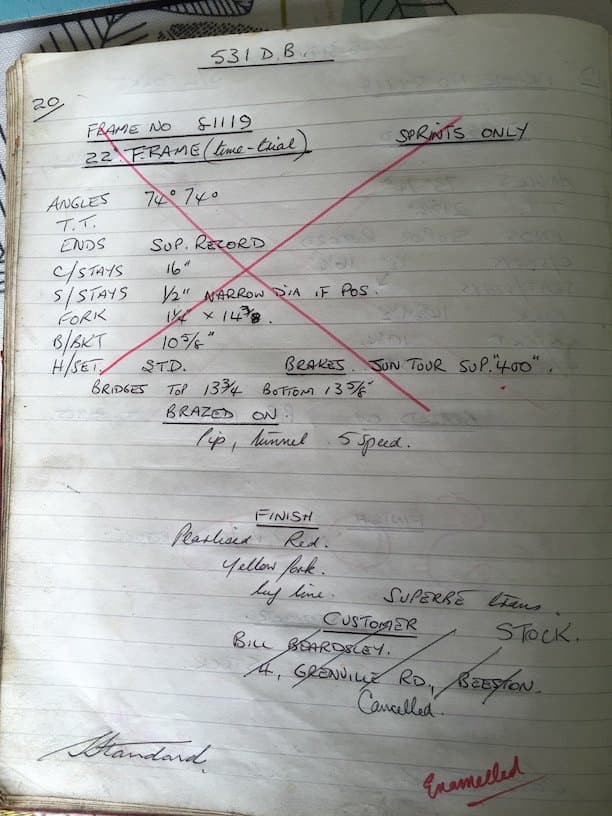 531 D.B.
20/
FRAME NO S1119
22" FRAME (time-trial) SPRINTS ONLY
ANGLES 74° 74°
T.T.
ENDS SUP. RECORD
C/STAYS 16"
S/STAYS 1/2" NARROW DIA IF POS.
FORK 1 1/4" × 14 3/8.
B/BKT 10 5/8"
H/SET. STD. BRAKES. SUN TOUR SUP. "400".
BRIDGES TOP 13 3/4 BOTTOM 13 5/8"
BRAZED ON.
Pip, tunnel 5 speed.
FINISH
Pearlised Red.
Yellow fork.
lug line. SUPERBE trans.
CUSTOMER STOCK.
BILL BEARDSLEY.
4, GRENVILLE RD., BEESTON.
Cancelled.
Standard.
Enamelled